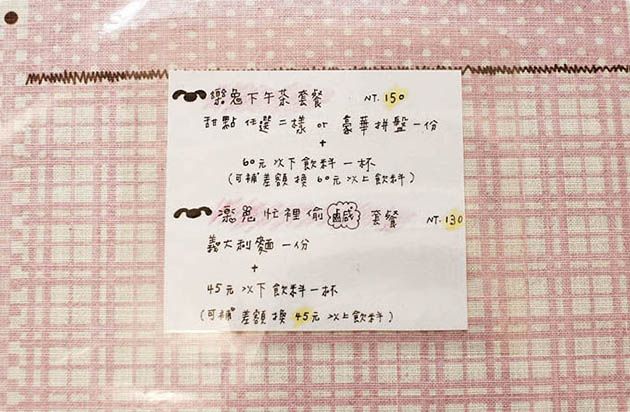 樂兔下午茶套餐 NT.150
甜點任選二樣 or 豪華拼盤一份
+
60元以下飲料一杯
(可補差額換60元以上飲料)
樂兔忙裡偷鹹套餐 NT.130
義大利麵一份
+
45元以下飲料一杯
(可補差額換45元以上飲料)